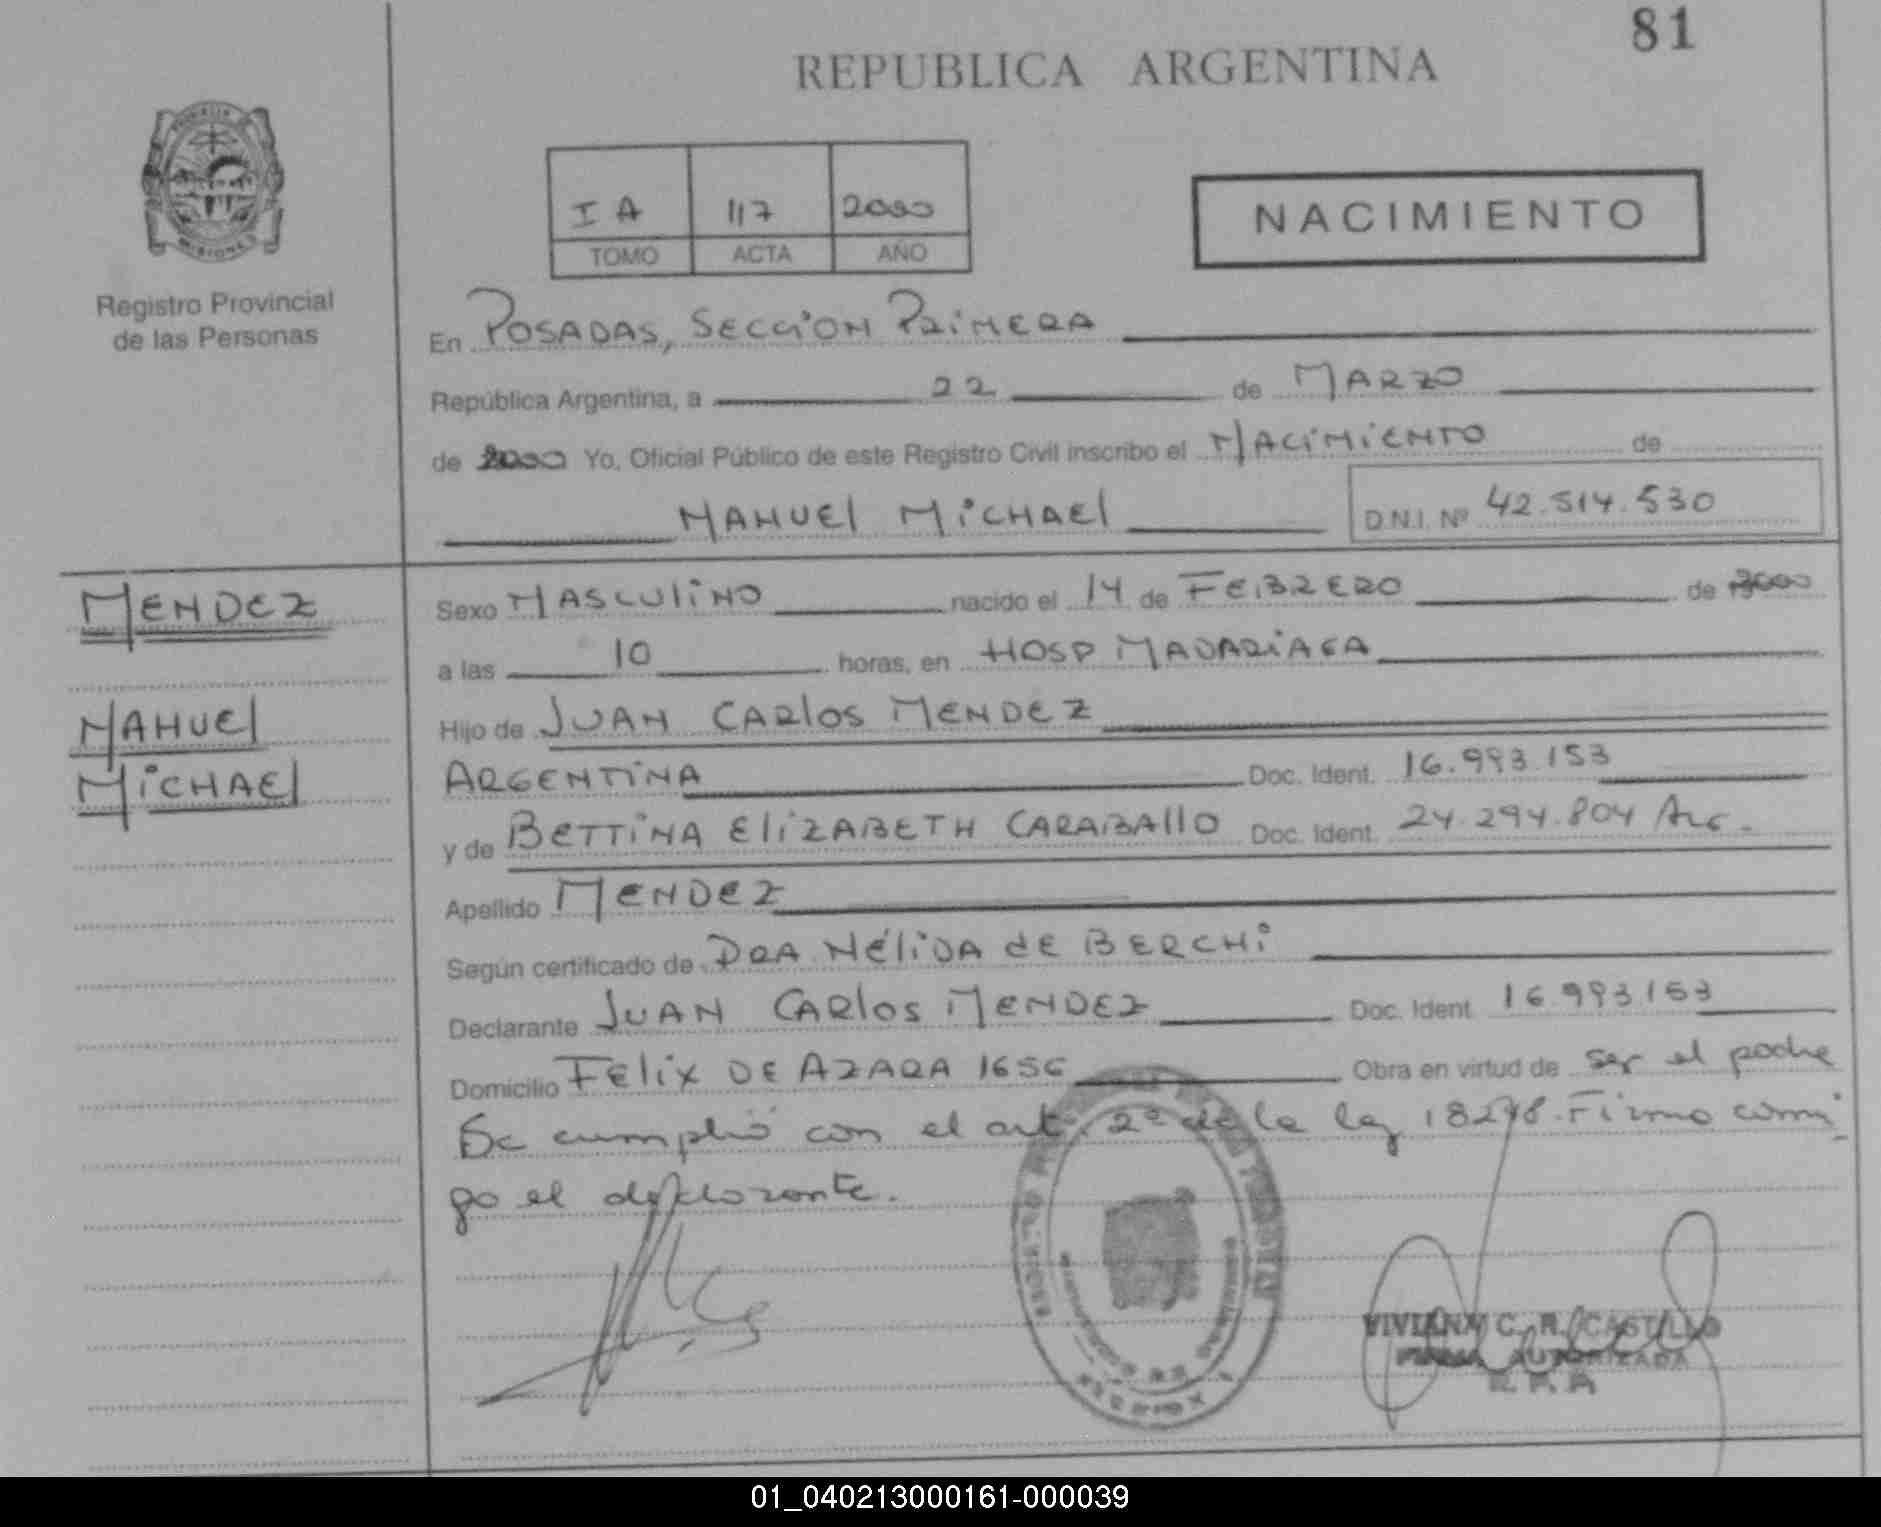 81
REPUBLICA ARGENTINA
I A 117 2000
TOMO ACTA AÑO
NACIMIENTO
MISIONES
Registro Provincial
de las Personas
En POSADAS, SECCION PRIMERA
República Argentina, a 22 de MARZO
de 2000 Yo, Oficial Público de este Registro Civil inscribo el NACIMIENTO de
NAHUEL MICHAEL D.N.I. Nº 42.514.530
MENDEZ
NAHUEL
MICHAEL
Sexo MASCULINO nacido el 14 de FEBRERO de 2000
a las 10 horas, en HOSP MADARIAGA
Hijo de JUAN CARLOS MENDEZ
ARGENTINA Doc. Ident. 16.993.153
y de BETTINA ELIZABETH CARABALLO Doc. Ident. 24.294.804 ARG.
Apellido MENDEZ
Según certificado de DRA NÉLIDA de BERCHI
Declarante JUAN CARLOS MENDEZ Doc. Ident. 16.993.153
Domicilio FELIX DE AZARA 1656 Obra en virtud de ser el padre
Se cumplió con el art. 2º de la ley 18248. Firmo conmi
go el declarante.
VIVIANA C. R. CASTILLO
FIRMA AUTORIZADA
R. P. P.
01_040213000161-000039